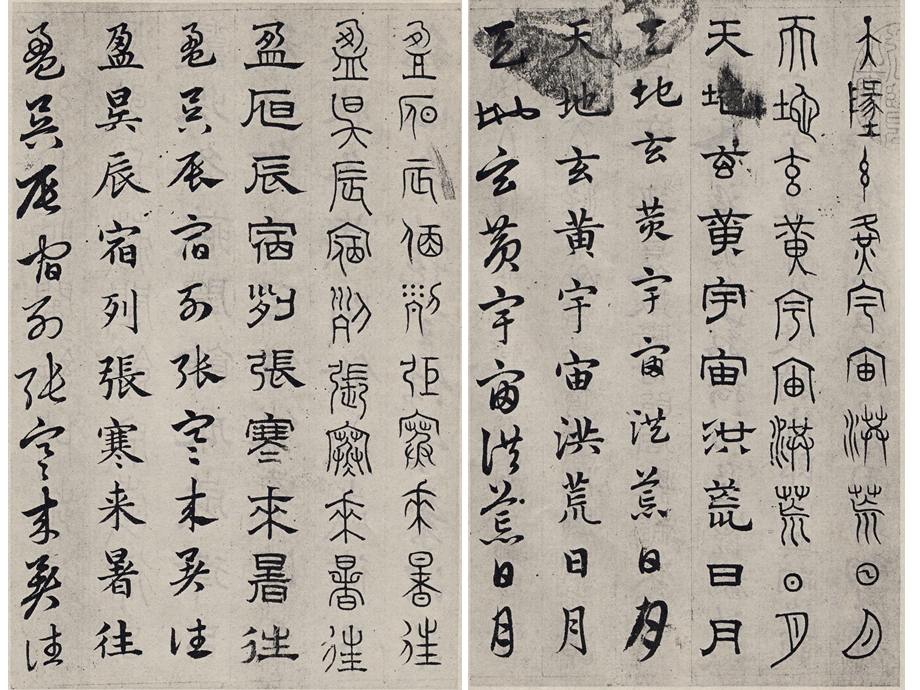 天地玄黃宇宙洪荒日月
天地玄黃宇宙洪荒日月
天地玄黃宇宙洪荒日月
天地玄黃宇宙洪荒日月
天地玄黃宇宙洪荒日月
天地玄黃宇宙洪荒日月
盈昃辰宿列張寒來暑往
盈昃辰宿列張寒來暑往
盈昃辰宿列張寒來暑往
盈昃辰宿列張寒来暑往
盈昃辰宿列張寒来暑往
盈昃辰宿列張寒来暑往